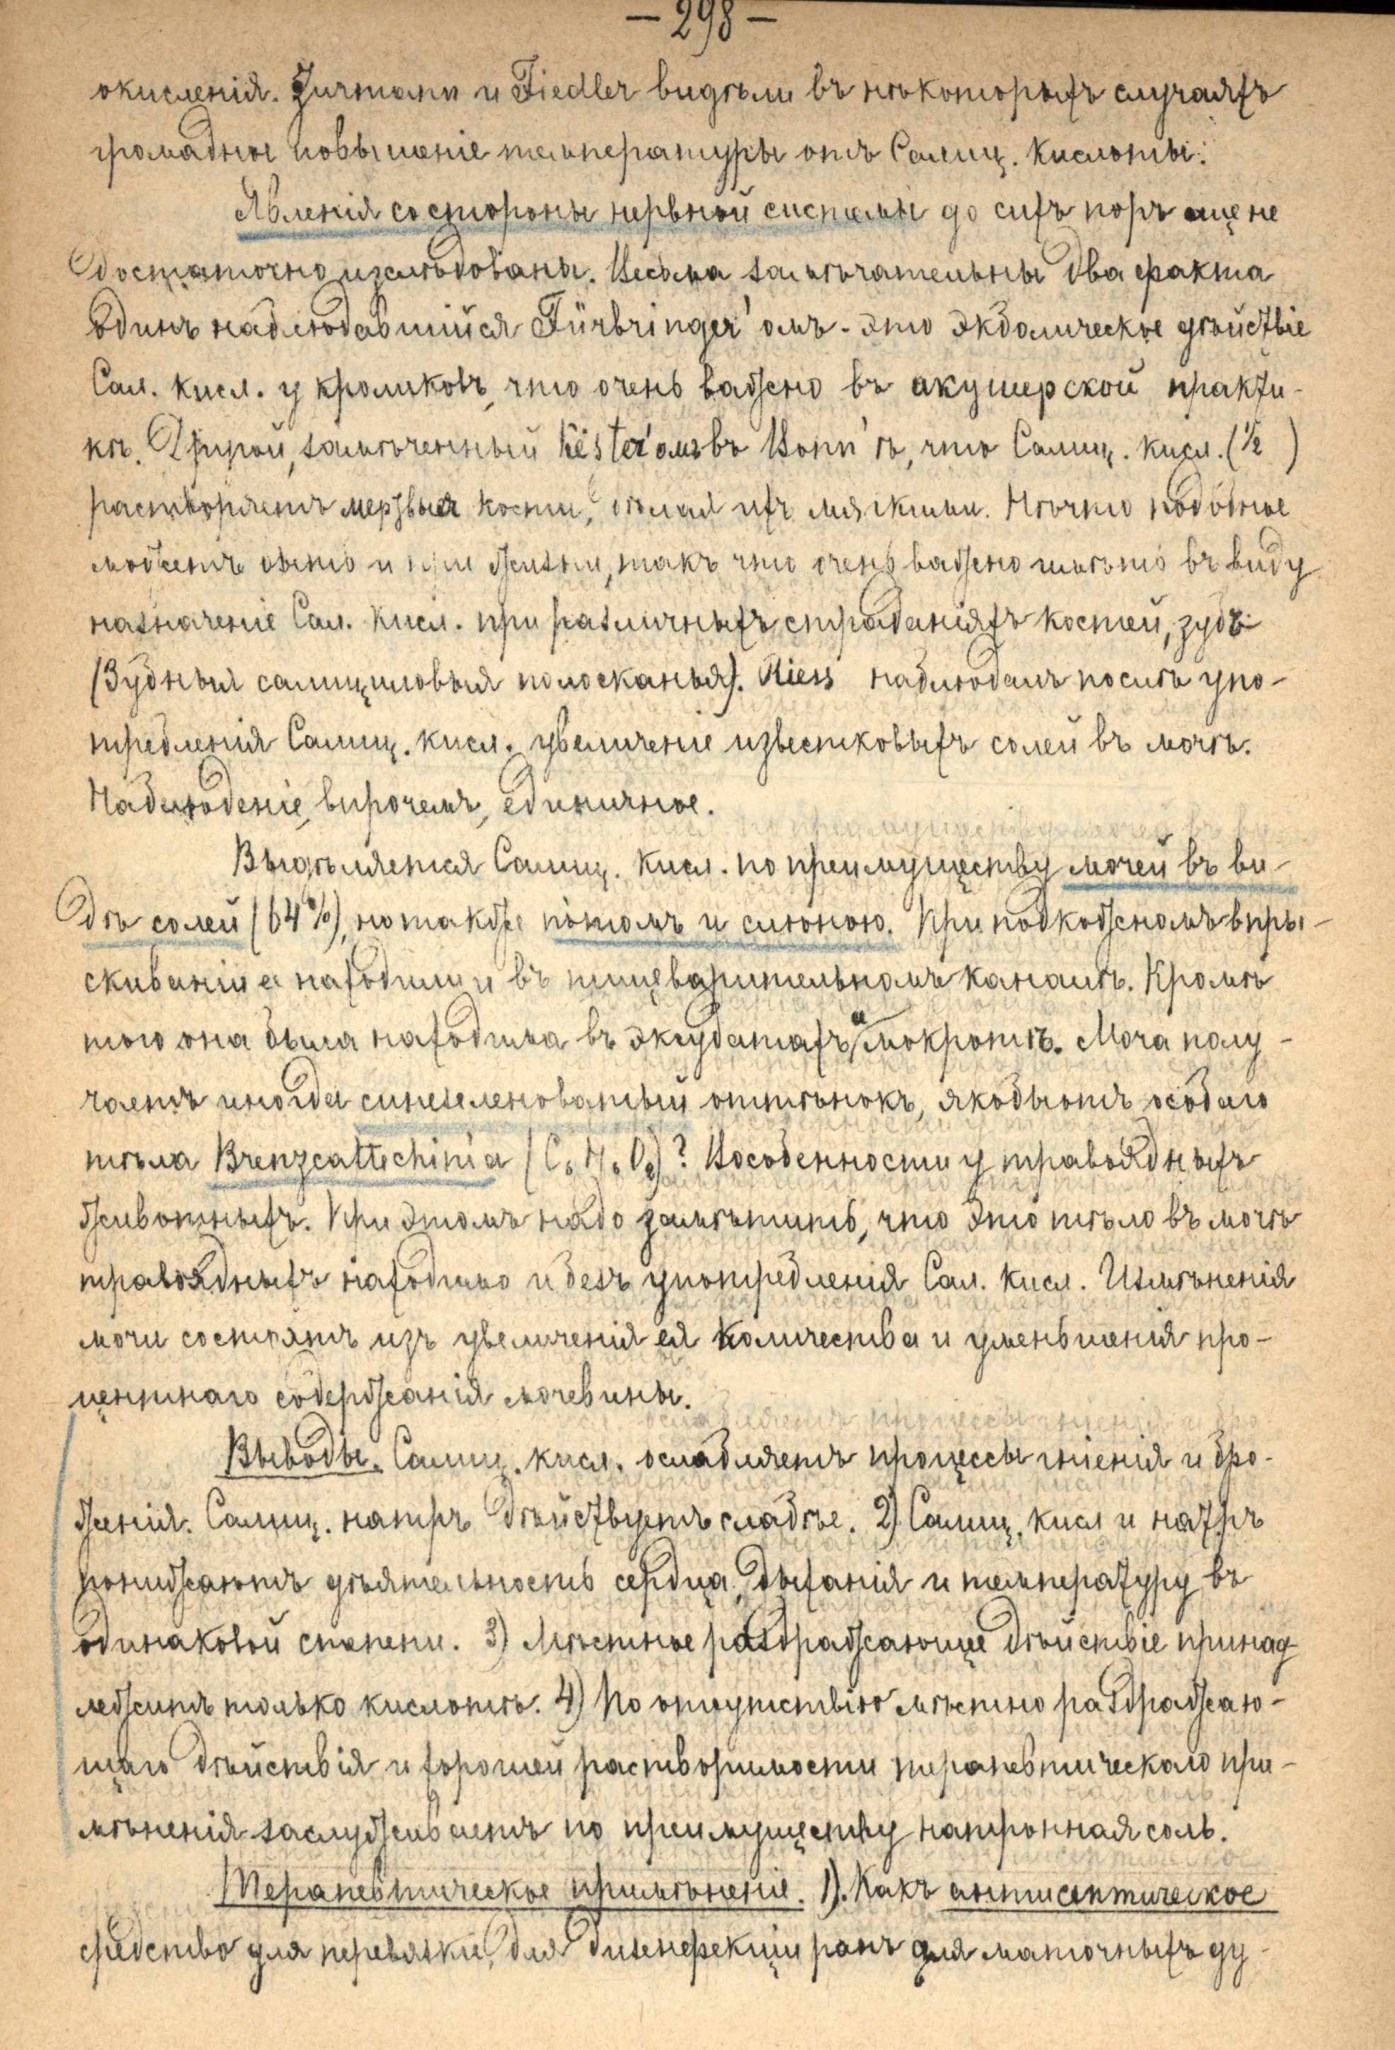 — 298 —
окисленія. Zurmann и Fiedler видѣли въ нѣкоторыхъ случаяхъ
громадное повышеніе температуры отъ Салиц. кислоты.
Явленія со стороны нервной системы до сихъ поръ еще не
достаточно изслѣдованы. Весьма замѣчательны два факта
одинъ наблюдавшійся Fürbringer'омъ - это экболическое дѣйствіе
Сал. кисл. у кроликовъ, что очень важно въ акушерской практи-
кѣ. Другой, замѣченный Köster'омъ въ Bonn'ѣ, что Салиц. кисл. (½ )
растворяетъ мертвыя кости, дѣлая ихъ мягкими. Нѣчто подобное
можетъ быть и при жизни, такъ что очень важно имѣть въ виду
назначеніе Сал. кисл. при различныхъ страданіяхъ костей, зубъ
(Зубныя салициловыя полосканья). Riess наблюдалъ послѣ упо-
требленія Салиц. кисл. увеличеніе известковыхъ солей въ мочѣ.
Наблюденіе, впрочемъ, единичное.
Выдѣляется Салиц. кисл. по преимуществу мочей въ ви-
дѣ солей (64%), но также потомъ и слюною. При подкожномъ впры-
скиваніи ея находили и въ пищеварительномъ каналѣ. Кромѣ
того она была находима въ эксудатахъ и мокротѣ. Моча полу-
чаетъ иногда синезеленоватый оттѣнокъ, якобы отъ особаго
тѣла Brenzcattechin'а (C₆H₆O₂)? Въ особенности у травоядныхъ
животныхъ. При этомъ надо замѣтить, что это тѣло въ мочѣ
травоядныхъ находимо и безъ употребленія Сал. кисл. Измѣненія
мочи состоятъ изъ увеличенія ея количества и уменьшенія про-
центнаго содержанія мочевины.
Выводы. Салиц. кисл. ослабляетъ процессы гніенія и бро-
женія. Салиц. натръ дѣйствуетъ слабѣе. 2) Салиц. кисл и натръ
понижаютъ дѣятельность сердца, дыханія и температуру въ
одинаковой степени. 3) Мѣстное раздражающее дѣйствіе принад
лежитъ только кислотѣ. 4) По отсутствію мѣстно раздражаю-
щаго дѣйствія и хорошей растворимости терапевтическаго при-
мѣненія заслуживаетъ по преимуществу натронная соль.
Терапевтическое примѣненіе. 1). Какъ антисептическое
средство для перевязки, для дизенфекціи ранъ для маточныхъ ду-